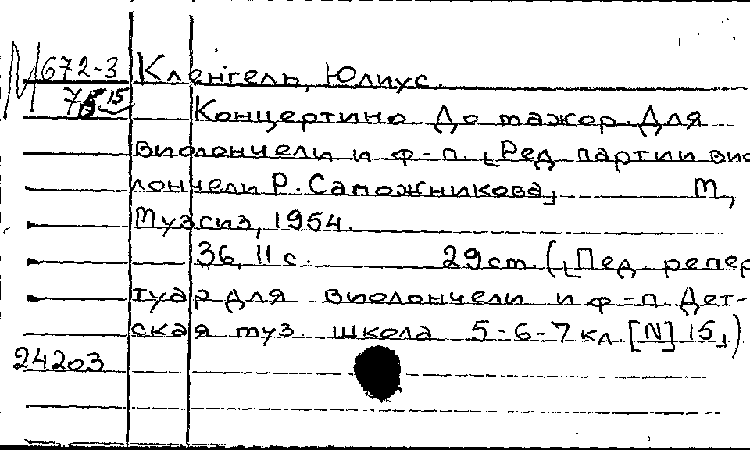 М672-3 Кленгель, Юлиус.
Концертино До мажор. Для
виолончели и ф-п. [Ред. партии вио
лончели Р. Сапожникова] М,
Музгиз, 1954.
36, 11 с. 29 см ([Пед. репер
туар для виолончели и ф-п. Дет-
ская муз. школа 5-6-7 кл. [N] 15])
24203